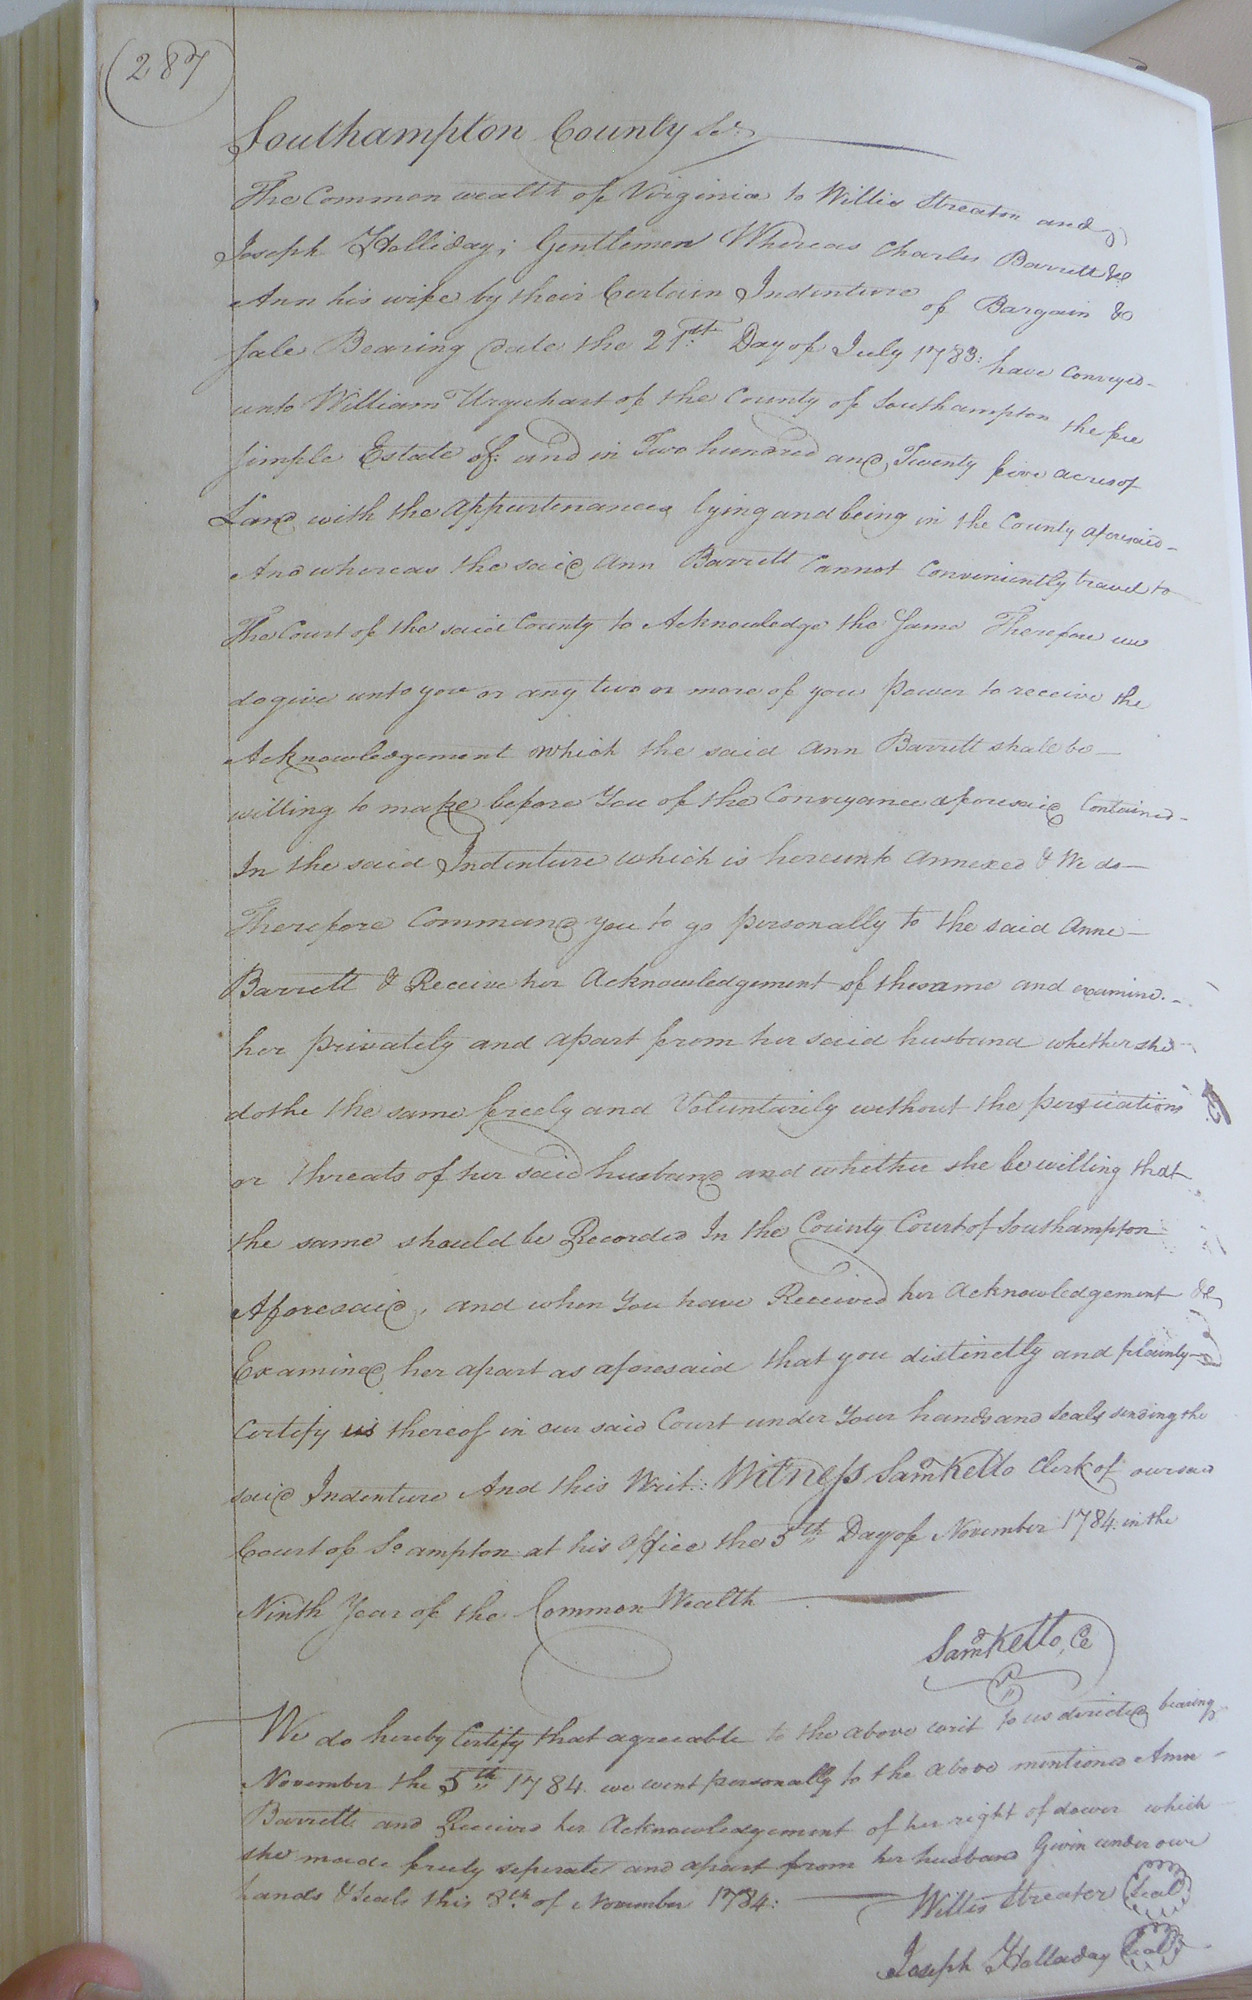 287
Southampton County Sc.
The Common wealth of Virginia to Willis Streator and
Joseph Holliday; Gentlemen Whereas Charles Barrett &
Ann his wife by their Certain Indenture of Bargain &
Sale Bearing date the 21st Day of July 1783: have Conveyed
unto William Urquhart of the County of Southampton the fee
Simple Estate of: and in Two hundred and Twenty five acres of
Land with the appurtenances lying and being in the County aforesaid
And whereas the said Ann Barrett Cannot Conveniently travel to
The Court of the said County to Acknowledge the Same Therefore we
do give unto you or any two or more of you Power to receive the
Acknowledgement which the said Ann Barrett shall be
willing to make before You of the Conveyance aforesaid Contained
In the said Indenture which is hereunto annexed & We do
Therefore Command you to go personally to the said Anne
Barrett & Receive her Acknowledgement of the same and examine
her privately and apart from her said husband whether she
dothe the same freely and Voluntarily without the persuations
or threats of her said husband and whether she be willing that
the same should be Recorded In the County Court of Southampton
Aforesaid, and when You have Received her Acknowledgement &
Examined her apart as aforesaid that you distinctly and plainly
Certify us thereof in our said Court under Your hands and Seals sending the
said Indenture And this Writ: Witness Saml Kello Clerk of our said
Court of So ampton at his office the 5th Day of November 1784. in the
Ninth Year of the Common Wealth
Saml Kello, Ce
We do hereby Certify that agreeable to the above writ to us directed bearing
November the 5th 1784. we went personally to the above mentioned Anne
Barrett and Received her Acknowledgement of her right of dower which
she made freely seperate and apart from her husband Givin under our
hands & Seals this 8th of November 1784:
Willis Streator (Seal)
Joseph Holladay (Seal)